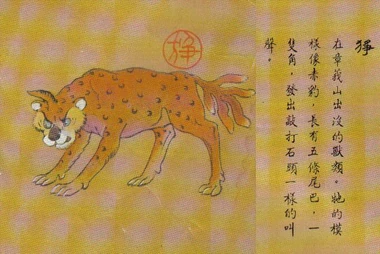 猙
在章莪山出沒的獸類。牠的模
樣像赤豹，長有五條尾巴，一
雙角，發出敲打石頭一樣的叫
聲。
猙